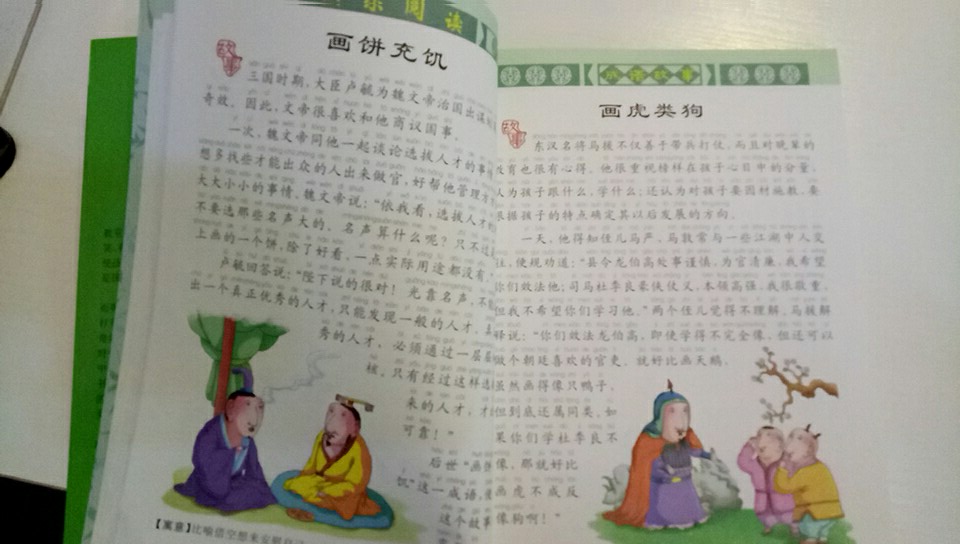 阅读
画饼充饥
故事
三国时期，大臣卢毓为魏文帝治国出谋
奇效。因此，文帝很喜欢和他商议国事。
一次，魏文帝同他一起谈论选拔人才的事
想多找些才能出众的人出来做官，好帮他管理
大大小小的事情。魏文帝说：“依我看，选拔人才
不要选那些名声大的。名声算什么呢？只不过
上画的一个饼，除了好看，一点实际用途都没有
卢毓回答说：“陛下说的很对！光靠名声，不
出一个真正优秀的人才，只能发现一般的人才，
秀的人才，必须通过一层
核。只有经过这样
来的人才，才
可靠！”
后世“画饼
饥”这一成语，
这个故事
【寓意】比喻借空想来安慰自
成语故事
画虎类狗
故事
东汉名将马援不仅善于带兵打仗，而且对晚辈的
教育也很有心得。他很重视榜样在孩子心目中的分量，
人为孩子跟什么，学什么；还认为对孩子要因材施教，要
根据孩子的特点确定其以后发展的方向。
一天，他得知侄儿马严、马敦常与一些江湖中人交
往，便规劝道：“县令龙伯高处事谨慎，为官清廉，我希望
你们效法他；司马杜季良豪侠仗义，本领高强，我很敬重，
但我不希望你们学习他。”两个侄儿觉得不理解，马援解
释说：“你们效法龙伯高，即使学得不完全像，但还可以
做个朝廷喜欢的官吏。就好比画天鹅，
虽然画得像只鸭子，
但到底还属同类。如
果你们学杜季良不
像，那就好比
画虎不成反
像狗啊！”